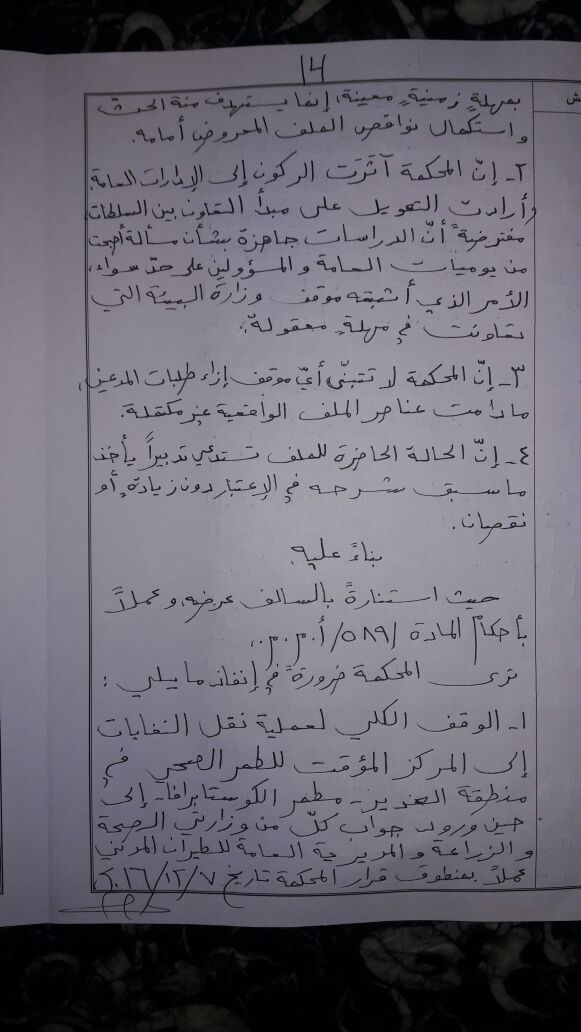 14
بمهلةٍ زمنيةٍ معينة، إنما يستهدف منه الحثّ
واستكمال نواقص الملف المعروض أمامه.
٢- إنّ المحكمة آثرَت الركون إلى الإدارات العامة،
وأرادت التعويل على مبدأ التعاون بين السلطات،
مفترضةً أنّ الدراسات جاهزة بشأن مسألة أصبحت
من يوميات العامة والمسؤولين على حدّ سواء،
الأمر الذي أثبته موقف وزارة البيئة التي
تعاونت في مهلةٍ معقولة.
٣- إنّ المحكمة لا تتبنّى أيّ موقف إزاء طلبات المدعين،
ما دامت عناصر الملف الواقعية غير مكتملة.
٤- إنّ الحالة الحاضرة للملف تستدعي تدبيراً يأخذ
ما سبق شرحه في الإعتبار دون زيادةٍ أو
نقصان.
بناءً عليه
حيث استنارةً بالسالف عرضه، وعملاً
بأحكام المادة /٥٨٩/ أ.م.م.،
ترى المحكمة ضرورةً في إنفاذ ما يلي:
١- الوقف الكلي لعملية نقل النفايات
إلى المركز المؤقت للطمر الصحي في
منطقة الغدير - مطمر الكوستابرافا - إلى
حين ورود جواب كلّ من وزارتي الصحة
والزراعة والمديرية العامة للطيران المدني
عملاً بمنطوق قرار المحكمة تاريخ ٢٠١٦/١٢/٧،